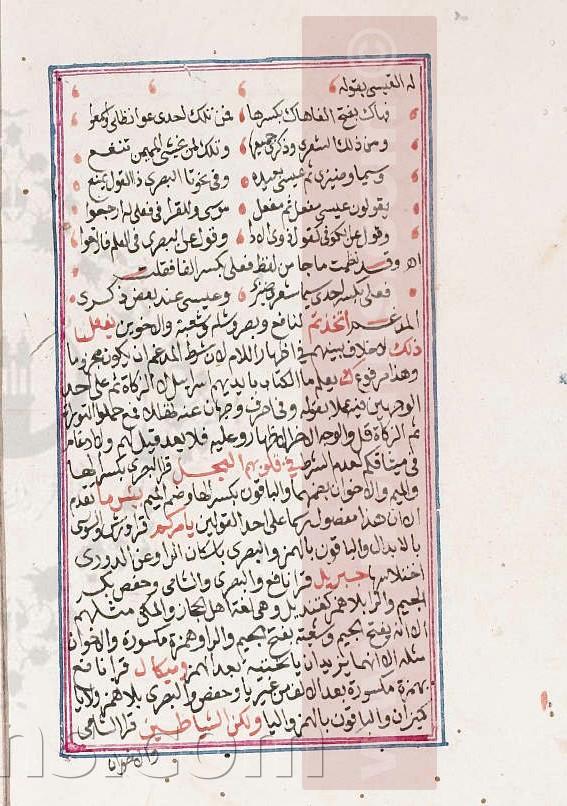 له القيسى بقوله
فهاك بفتح الفا هاك بكسرها
ومن ذلك اشعرى وذكرى جميعها وتلك لمن يخشى المهيمن تنفع
وسيما وضيزى ثم عيسى بعيده وفى نحوتا البصرى ذا القول يمنع
يقولون عيسى مفعل ثم مفعل موسى وللقرا فى فعلى له ارجعوا
وقول عن الكوفى كقول ذوى الادا وقول عن البصرى فى العلم فاقنعوا
اه وقد نظمت ما جا من لفظ فعلى بكسر الفا فقلت
فعلى بكسر احدى سيما شعرى ضيزى وعيسى عند بعض ذكرى
المدغم اتخذتم لنافع وبصرى وشامى وشعبة والاخوين يفعل
ذلك لا خلاف بينهم فى اظهار اللام لان شرط المدغم ان يكون مجزوما
وهذا مرفوع ك يعلم ما الكتاب بايديهم اسرائيل الزكاة ثم على احد
الوجهين فيه عملا بقوله وفى احرف وجهان عنه تهللا فمع حملوا التوراة
ثم الزكاة قل والوجه الاخر الاظهار وعليه فلا يعد قيل لهم ولا ادغام
فى ميثاقكم لعدم الشرط فى قلوبهم العجل قرا البصرى بكسر الها
والميم والاخوان بضمهما والباقون بكسر الها وضم الميم بئس ما تقدم
الا ان هذا مفصول رسما على احد القولين يامركم قرا ورش والسوسى
بالابدال والباقون بالهمز والبصرى باسكان الرا وعن الدورى
اختلاسها جبريل قرا نافع والبصرى والشامى وحفص بكسر
الجيم والرا بلا همز كقنديل وهى لغة اهل الحجاز والمكى مثلهم
الا انه بفتح الجيم وشعبة بفتح الجيم والرا وهمزة مكسورة والاخوان
مثله الا انهما يزيدان يا تحتية بعد الهمز وميكال قرا نافع
بهمزة مكسورة بعد الالف من غير يا وحفص والبصرى بلا همز ولا يا
كميزان والباقون بالهمز واليا ولكن الشياطين قرا الشامى
والاخوان